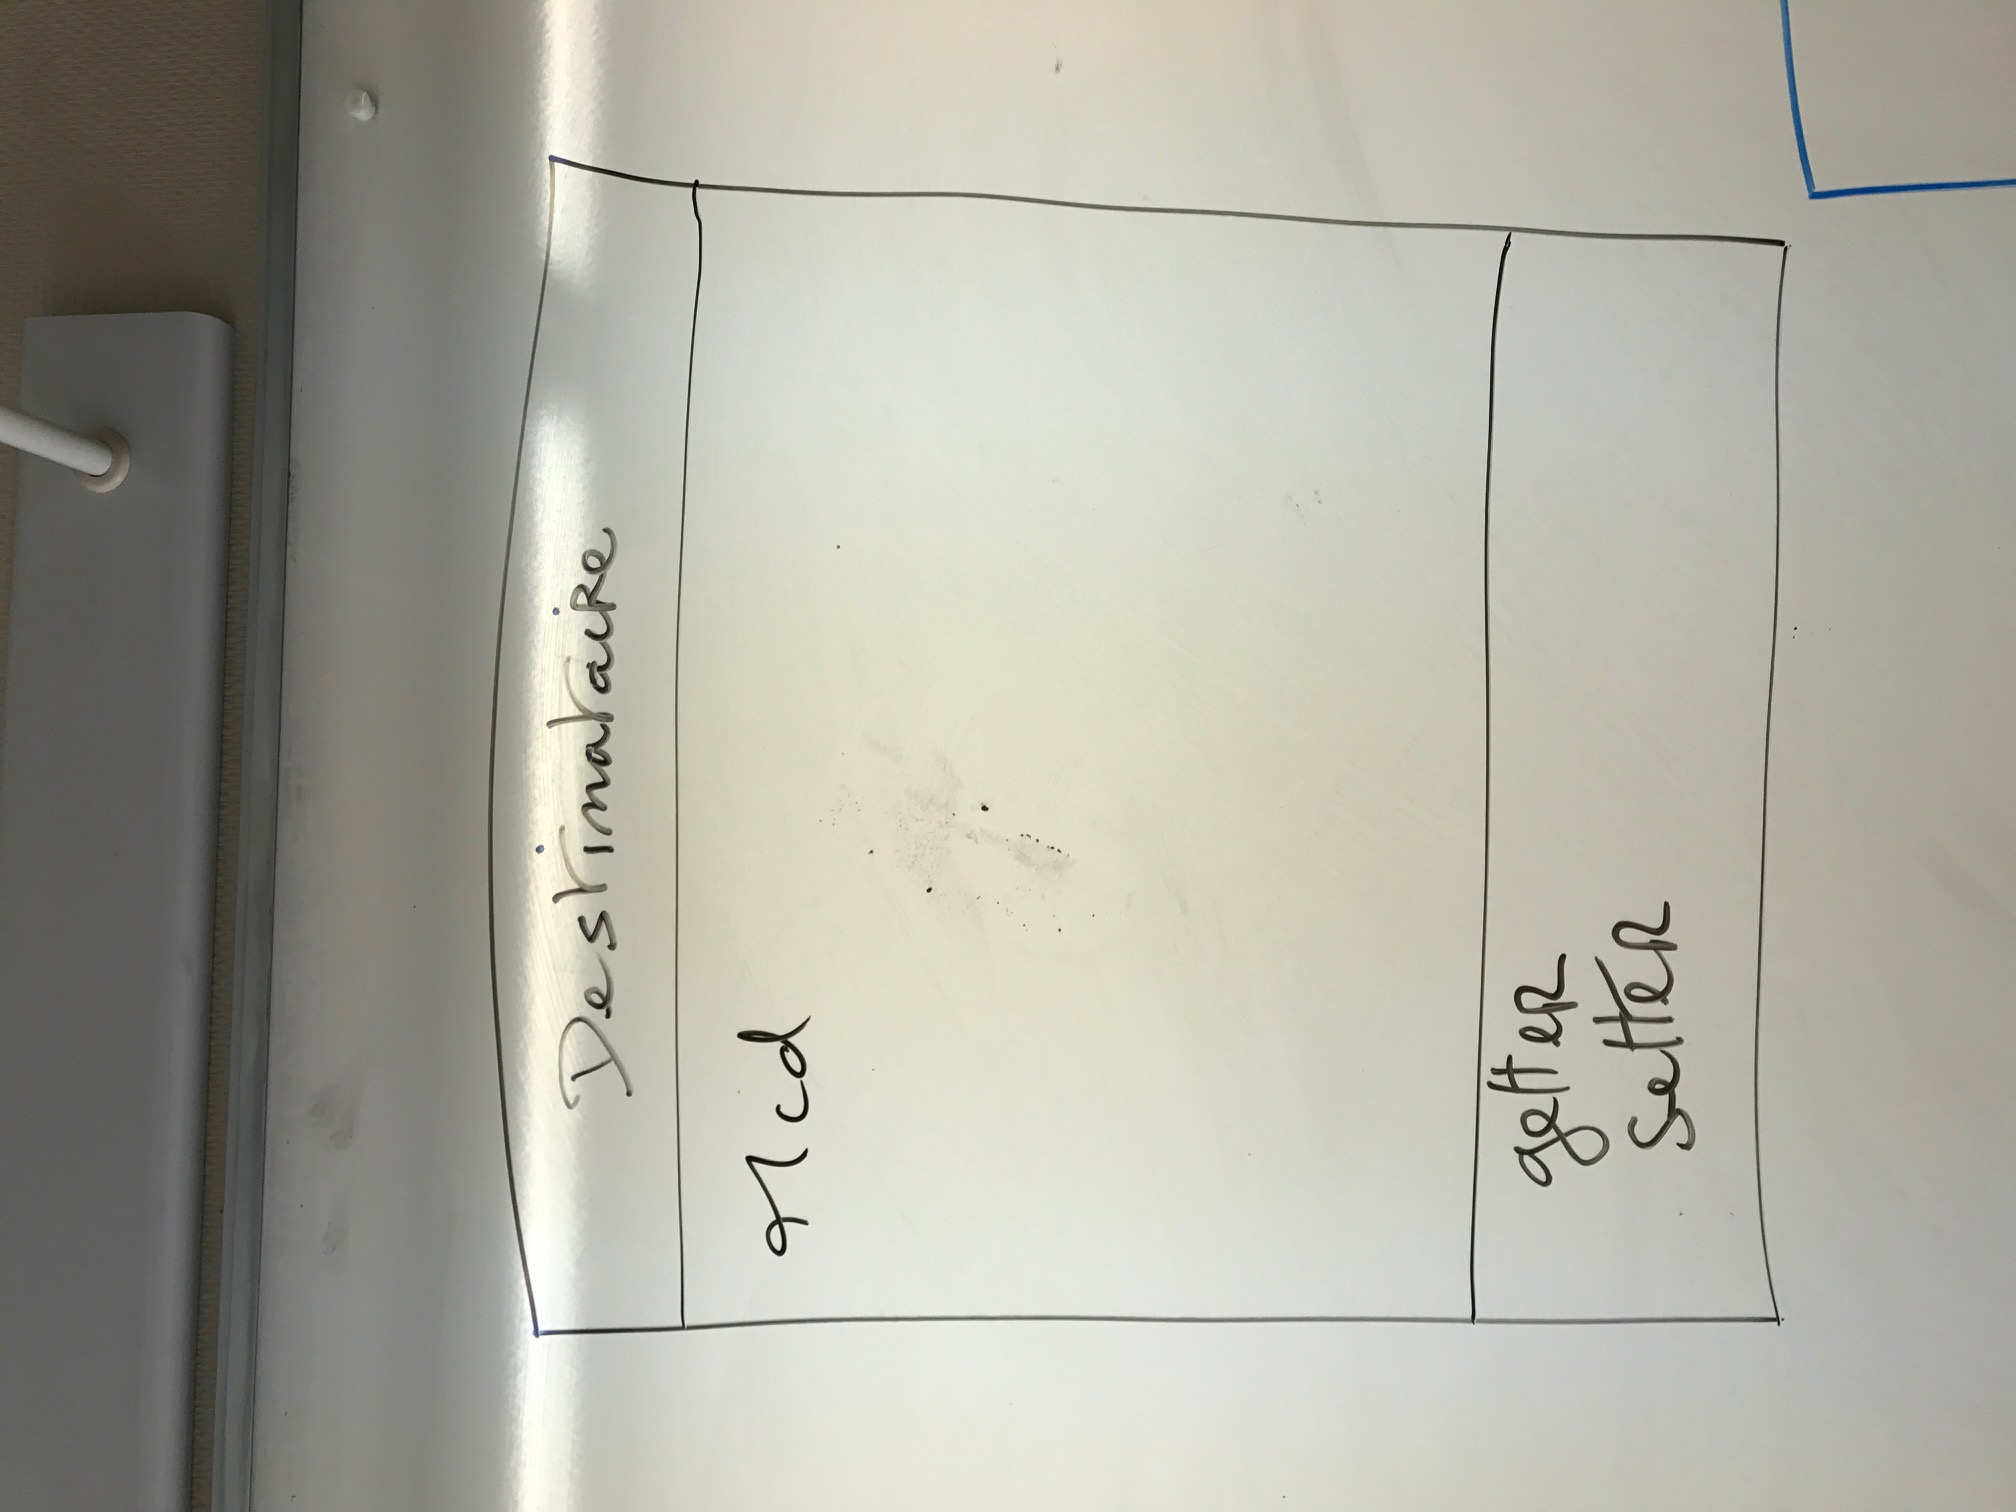 Destinataire
Mcd
getter
setter